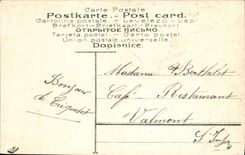 Carte Postale
Postkarte. - Post card.
Cartolina postale - Levelező-Lap
Brefkort - Briefkaart - Brevkort
ОТКРЫТОЕ ПИСЬМО
Tarjeta postal - Carta postal
Union postale universelle.
Dopisnice.
Madame Berthelot
Bonjour
de
Café Restaurant
Valmont
S. Infre